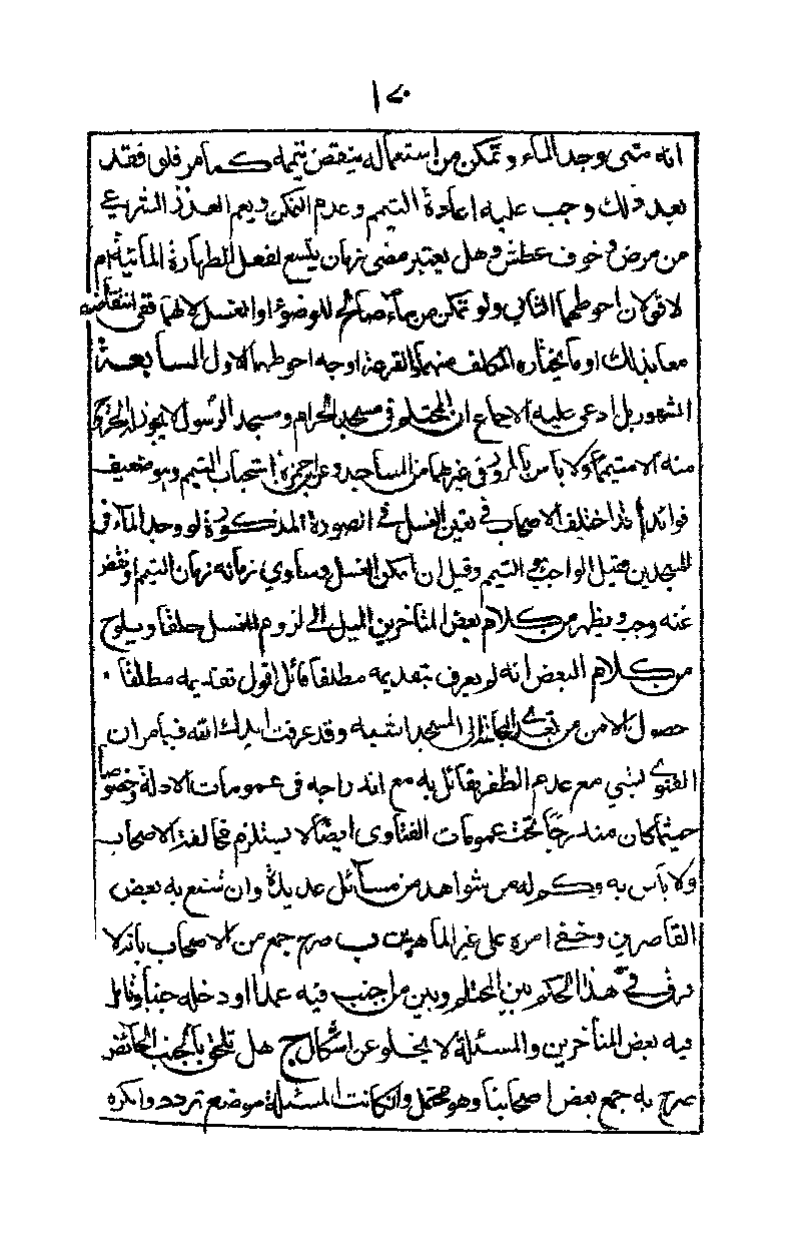 انه متى وجد الماء و تمكن من استعماله ينقض تيممه كما مر فلو فقد
بعد ذلك وجب عليه اعادة التيمم و عدم التمكن و يعم العذر الشرعي
من مرض و خوف عطش و هل يعتبر مضى زمان يتسع لفعل الطهارة المائية ام
لا قولان احوطهما الثاني و لو تمكن من ماء صالح للوضوء او الغسل لا لهما ففي انتقاضه
معا بذلك او ما يختاره المكلف منهما او القرعة اوجه احوطهما الاول السابعة
المشهور بل ادعى عليه الاجماع ان المحتلم في مسجد الحرام و مسجد الرسول لا يجوز الخروج
منه الا متيمما و لا باس بالمرور في غيرهما من المساجد و عن ابن حمزة استحباب التيمم و هو ضعيف
فوائد ا قد اختلف الاصحاب في تعين الغسل في الصورة المذكورة لو وجد الماء في
المسجدين فقيل الواجب هو التيمم و قيل ان امكن الغسل و ساوى زمانه زمان التيمم او نقص
عنه وجب و يظهر من كلام بعض المتاخرين الميل الى لزوم الغسل مطلقا و يلوح
من كلام البعض انه لو يعرف بتقديمه مطلقا قائل اقول تقديمه مطلقا
حصول الامن من تعدي النجاسة الى المسجد اشبه و قد عرفت ايدك الله فيما مر ان
الفتوى لشيء مع عدم الظفر بقائل به مع اندراجه في عمومات الادلة و خصوصا
حيثما كان مندرجا تحت عمومات الفتاوى ايضا لا يستلزم مخالفة الاصحاب
و لا باس به و كم له من شواهد من مسائل عديدة و ان شنع به بعض
القاصرين و خفي امره على غير الماهرين ب صرح جمع من الاصحاب بانه لا
فرق في هذا الحكم بين المحتلم و بين من اجنب فيه عمدا او دخله جنبا و تامل
فيه بعض المتاخرين و المسئلة لا يخلو عن اشكال ج هل تلحق بالجنب الحائض
صرح به جمع بعض اصحابنا و هو محتمل و ان كانت المسئلة موضع تردد و انكره